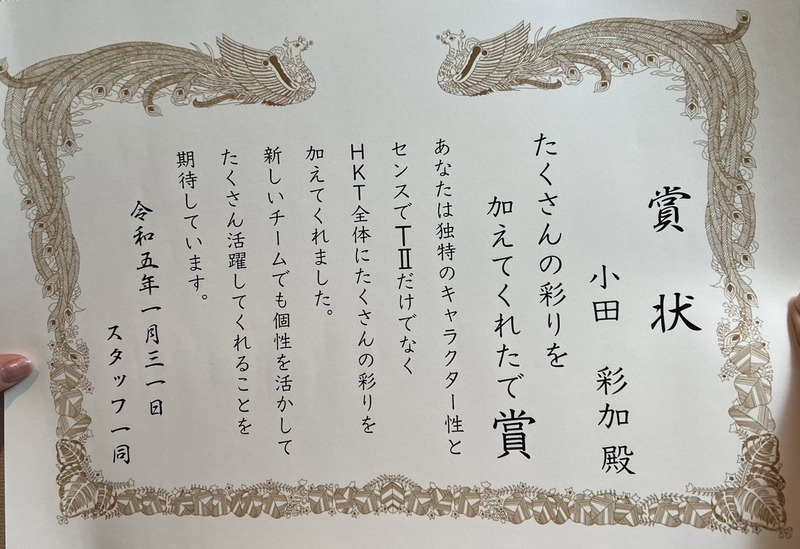 賞状
小田 彩加 殿
たくさんの彩りを
加えてくれたで賞
あなたは独特のキャラクター性と
センスでTⅡだけでなく
HKT全体にたくさんの彩りを
加えてくれました。
新しいチームでも個性を活かして
たくさん活躍してくれることを
期待しています。
令和五年一月三一日
スタッフ一同